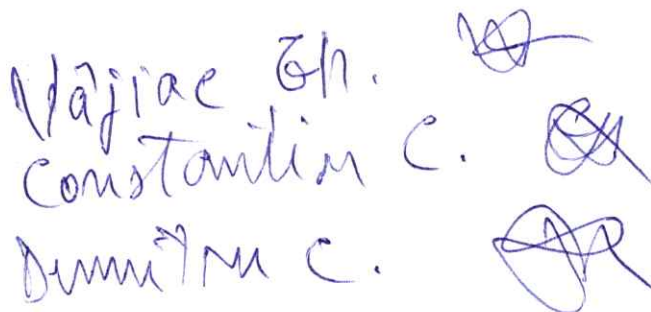 Vâjiac Gh.
Constantin C.
Dumitru C.